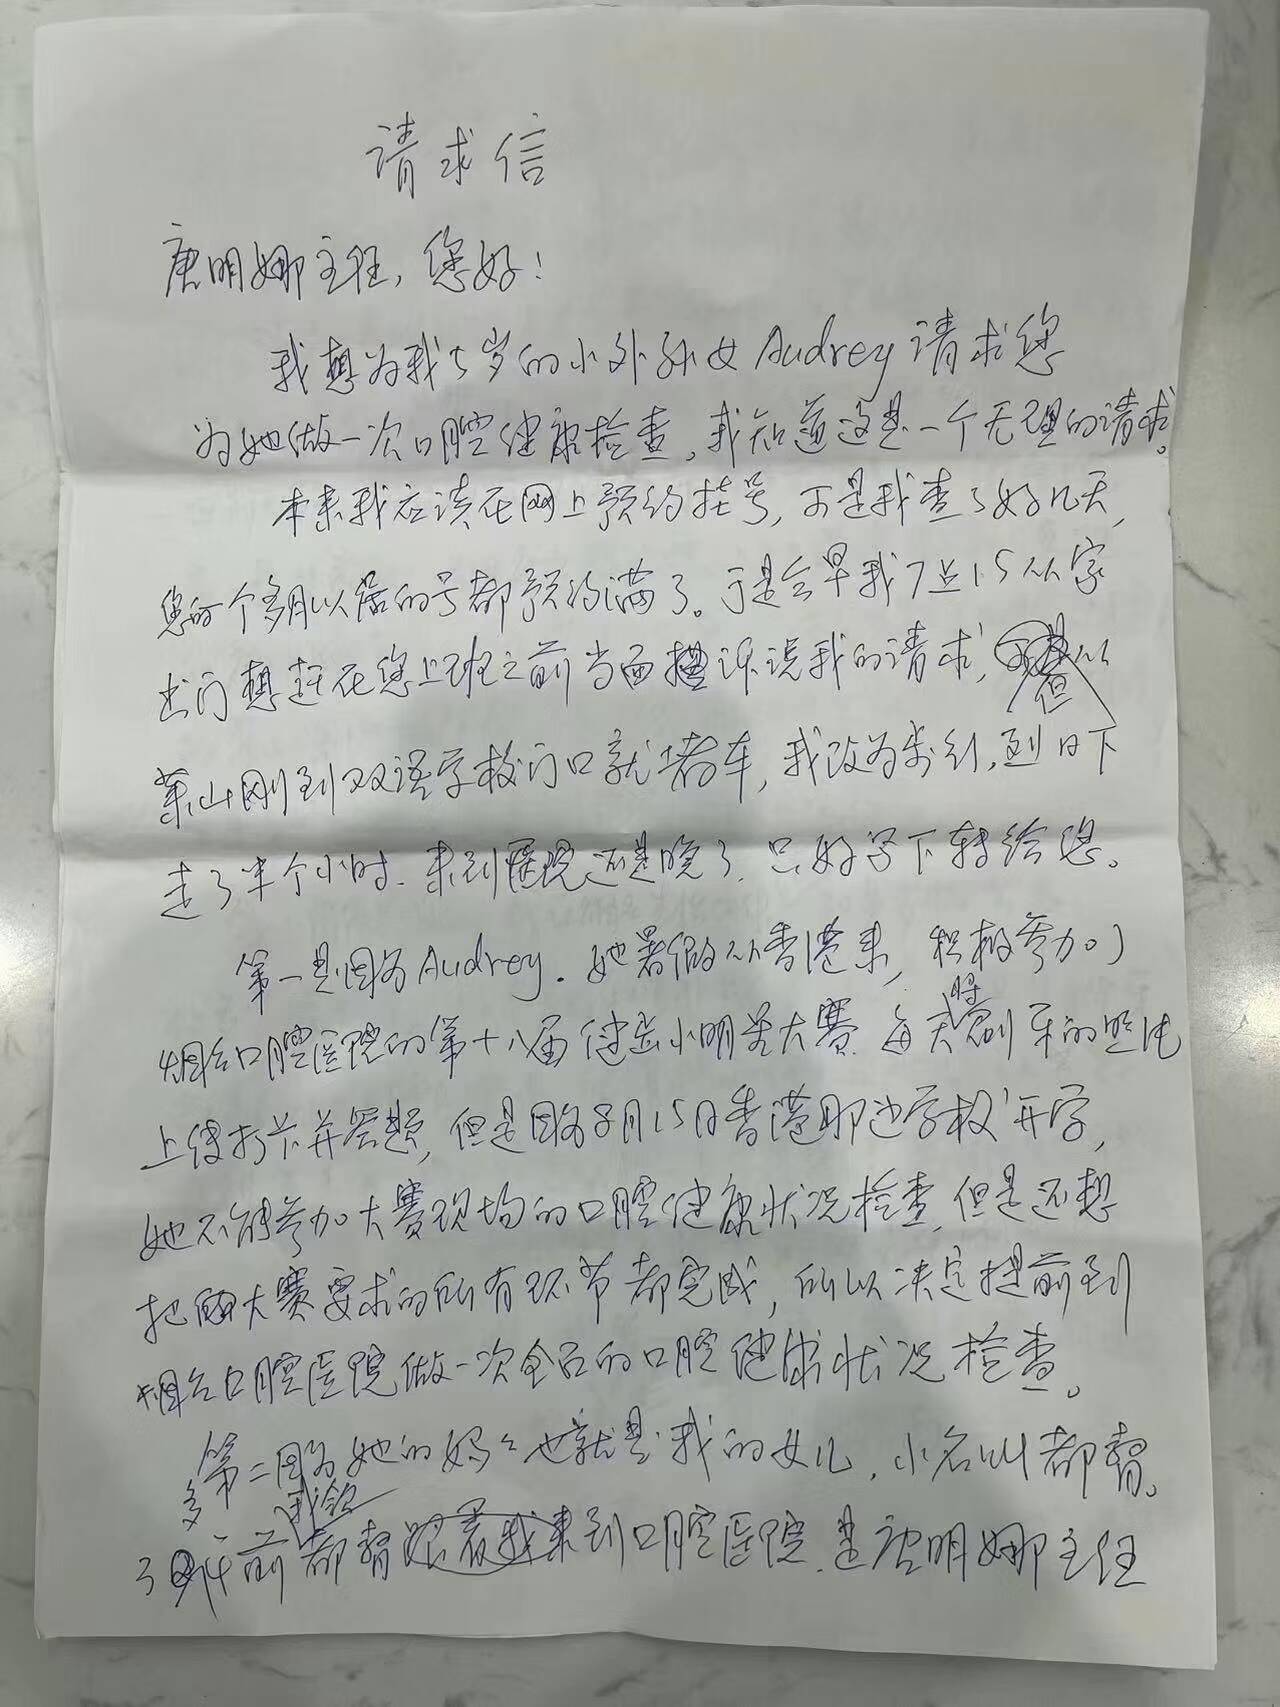 请求信
唐明娜主任，您好！
我想为我5岁的小外孙女Audrey请求您
为她做一次口腔健康检查。我知道这是一个无理的请求。
本来我应该在网上预约挂号，可是我查了好几天，
您的个多月以后的号都预约满了。于是今早我7点15从家
出门想赶在您上班之前当面诉说我的请求，但从
莱山刚到双语学校门口就堵车，我改为步行，烈日下
走了半个小时。来到医院还是晚了，只好写下转给您。
第一是因为Audrey。她暑假从香港来，积极参加了
烟台口腔医院的第十八届健齿小明星大赛，每天将刷牙的照片
上传打卡并答题，但是因为8月15日香港那边学校开学，
她不能参加大赛现场的口腔健康状况检查，但是还想
把大赛要求的所有环节都完成，所以决定提前到
烟台口腔医院做一次全面的口腔健康状况检查。
第二因为她的妈妈也就是我的女儿，小名叫都督。
30多年前我领都督来到口腔医院，是唐明娜主任